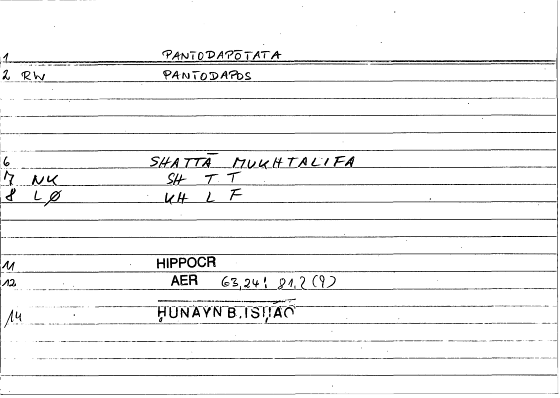 1 PANTODAPŌTATA
2 RW PANTODAPOS
6 SHATTĀ MUKHTALIFA
7 NK SH T T
8 LØ KH L F
11 HIPPOCR
12 AER 63,24: 81,2 (9)
14 ḤUNAYN B. ISḤĀQ